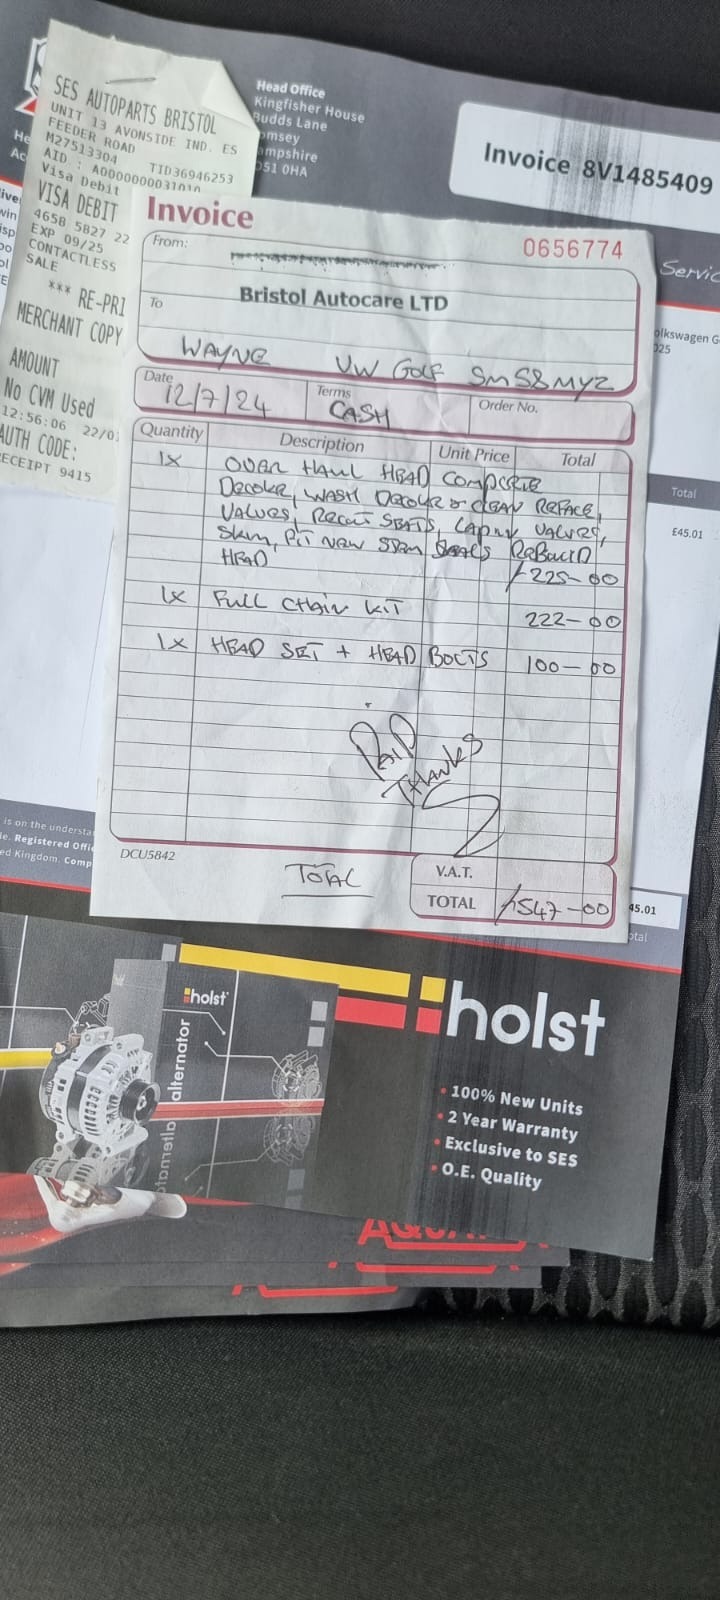 SES AUTOPARTS BRISTOL
UNIT 13 AVONSIDE IND. ES
FEEDER ROAD
M27513304 TID36946253
AID : A0000000031010
Visa Debit
VISA DEBIT
4658 5827 22
EXP 09/25
CONTACTLESS
SALE
*** RE-PRI
MERCHANT COPY
AMOUNT
No CVM Used
12:56:06 22/0
AUTH CODE:
ECEIPT 9415
Head Office
Kingfisher House
Budds Lane
omsey
ampshire
O51 0HA
Invoice 8V1485409
Servic
olkswagen G
025
Total
£45.01
Invoice
0656774
From:
To
Bristol Autocare LTD
WAYNE VW GOLF SM58MYZ
Date
12/7/24
Terms
CASH
Order No.
Quantity Description Unit Price Total
1x OVER HAUL HEAD COMPLETE
DECOKE, WASH DECOKE & CLEAN REFACE,
VALVES, RECUT SEATS, LAPIN VALVES,
SKIM, FIT NEW STEM SEALS REBUILD
HEAD £225-00
1x FULL CHAIN KIT 222-00
1x HEAD SET + HEAD BOLTS 100-00
PAID
THANKS
DCU5842
TOTAL
V.A.T.
TOTAL £547-00
is on the understa
le. Registered Offi
ed Kingdom. Comp
45.01
otal
holst
alternator
holst
• 100% New Units
• 2 Year Warranty
• Exclusive to SES
• O.E. Quality